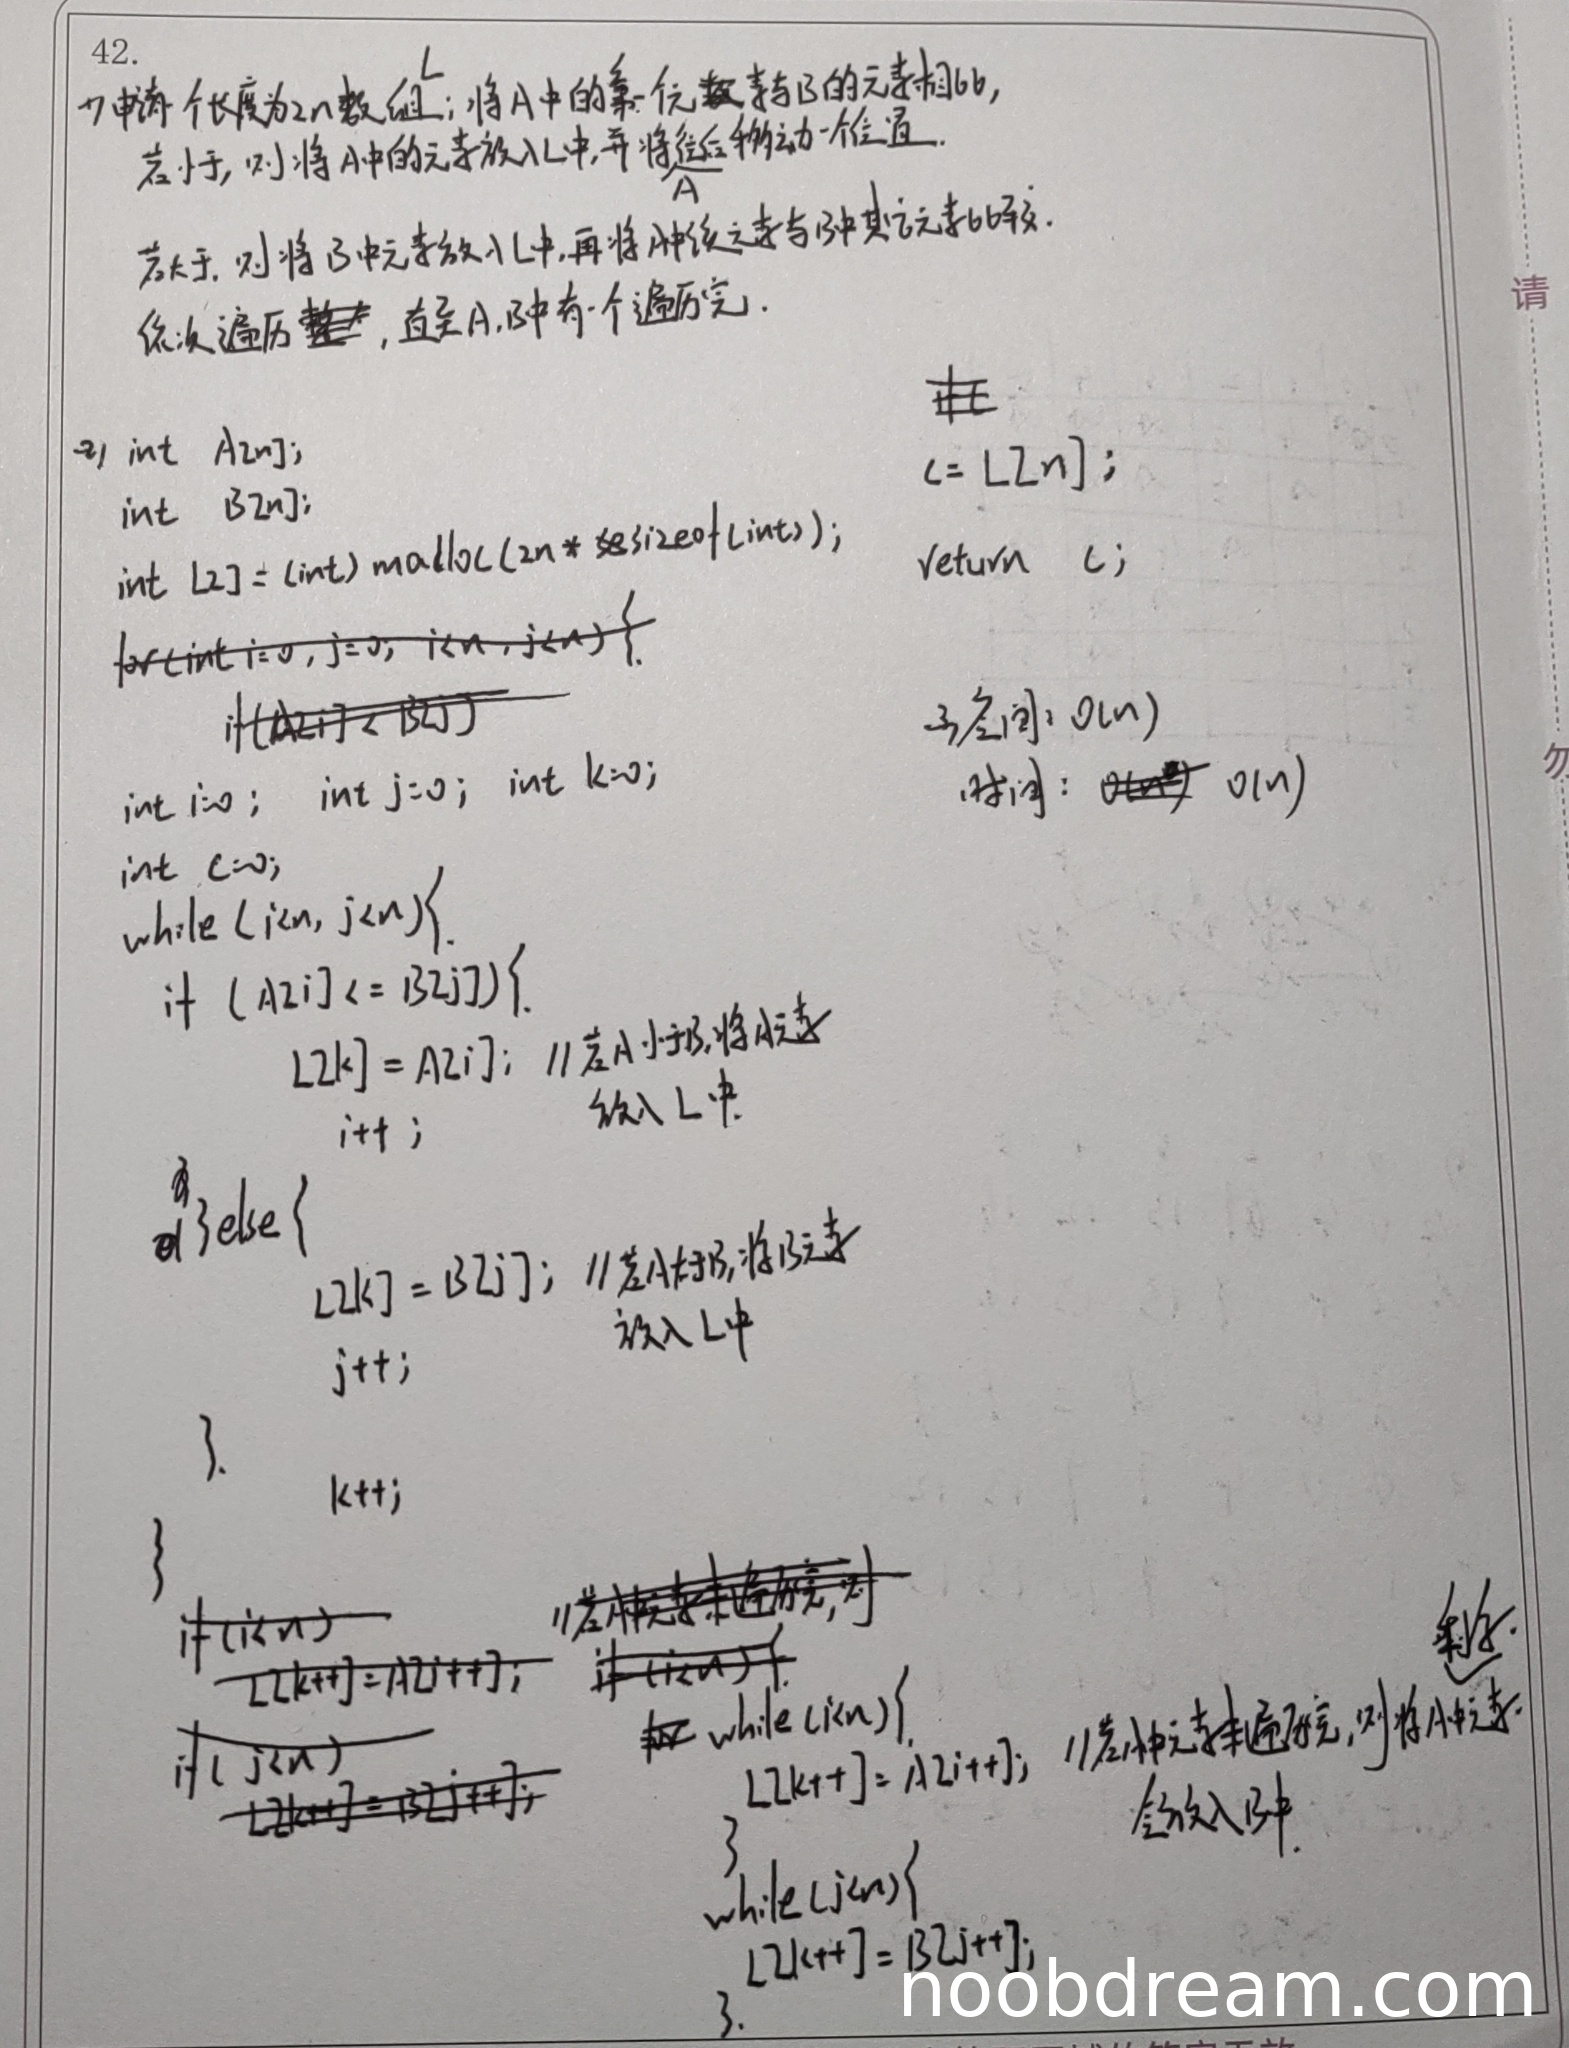 42.
1) 申请一个长度为2n数组L; 将A中的第一个元素与B的元素相比,
若小于, 则将A中的元素放入L中, 并将A往后移动一个位置.
若大于. 则将B中元素放入L中, 再将A中该元素与B中其它元素比较.
依次遍历, 直至A.B中有一个遍历完.
2) int A[n];
int B[n];
int L[] = (int) malloc(2n * sizeof(int));
for(int i=0, j=0; i<n, j<n) {
if(A[i] < B[j])
int i=0; int j=0; int k=0;
int c=0;
while (i<n, j<n){
if (A[i] <= B[j]){
L[k] = A[i]; //若A小于B, 将A元素
放入L中.
i++;
}else{
L[k] = B[j]; //若A大于B, 将B元素
放入L中
j++;
}
k++;
}
if(i<n)
L[k++]=A[i++];
if(j<n)
L[k++]=B[j++];
//若A中元素未遍历完, 则
if(i<n){
while(i<n){
L[k++] = A[i++]; //若A中元素未遍历完, 则将A中剩余元素
全放入B中.
}
while(j<n){
L[k++] = B[j++];
}
c= L[n];
return c;
3) 空间: O(n)
时间: O(n)
请
勿
noobdream.com